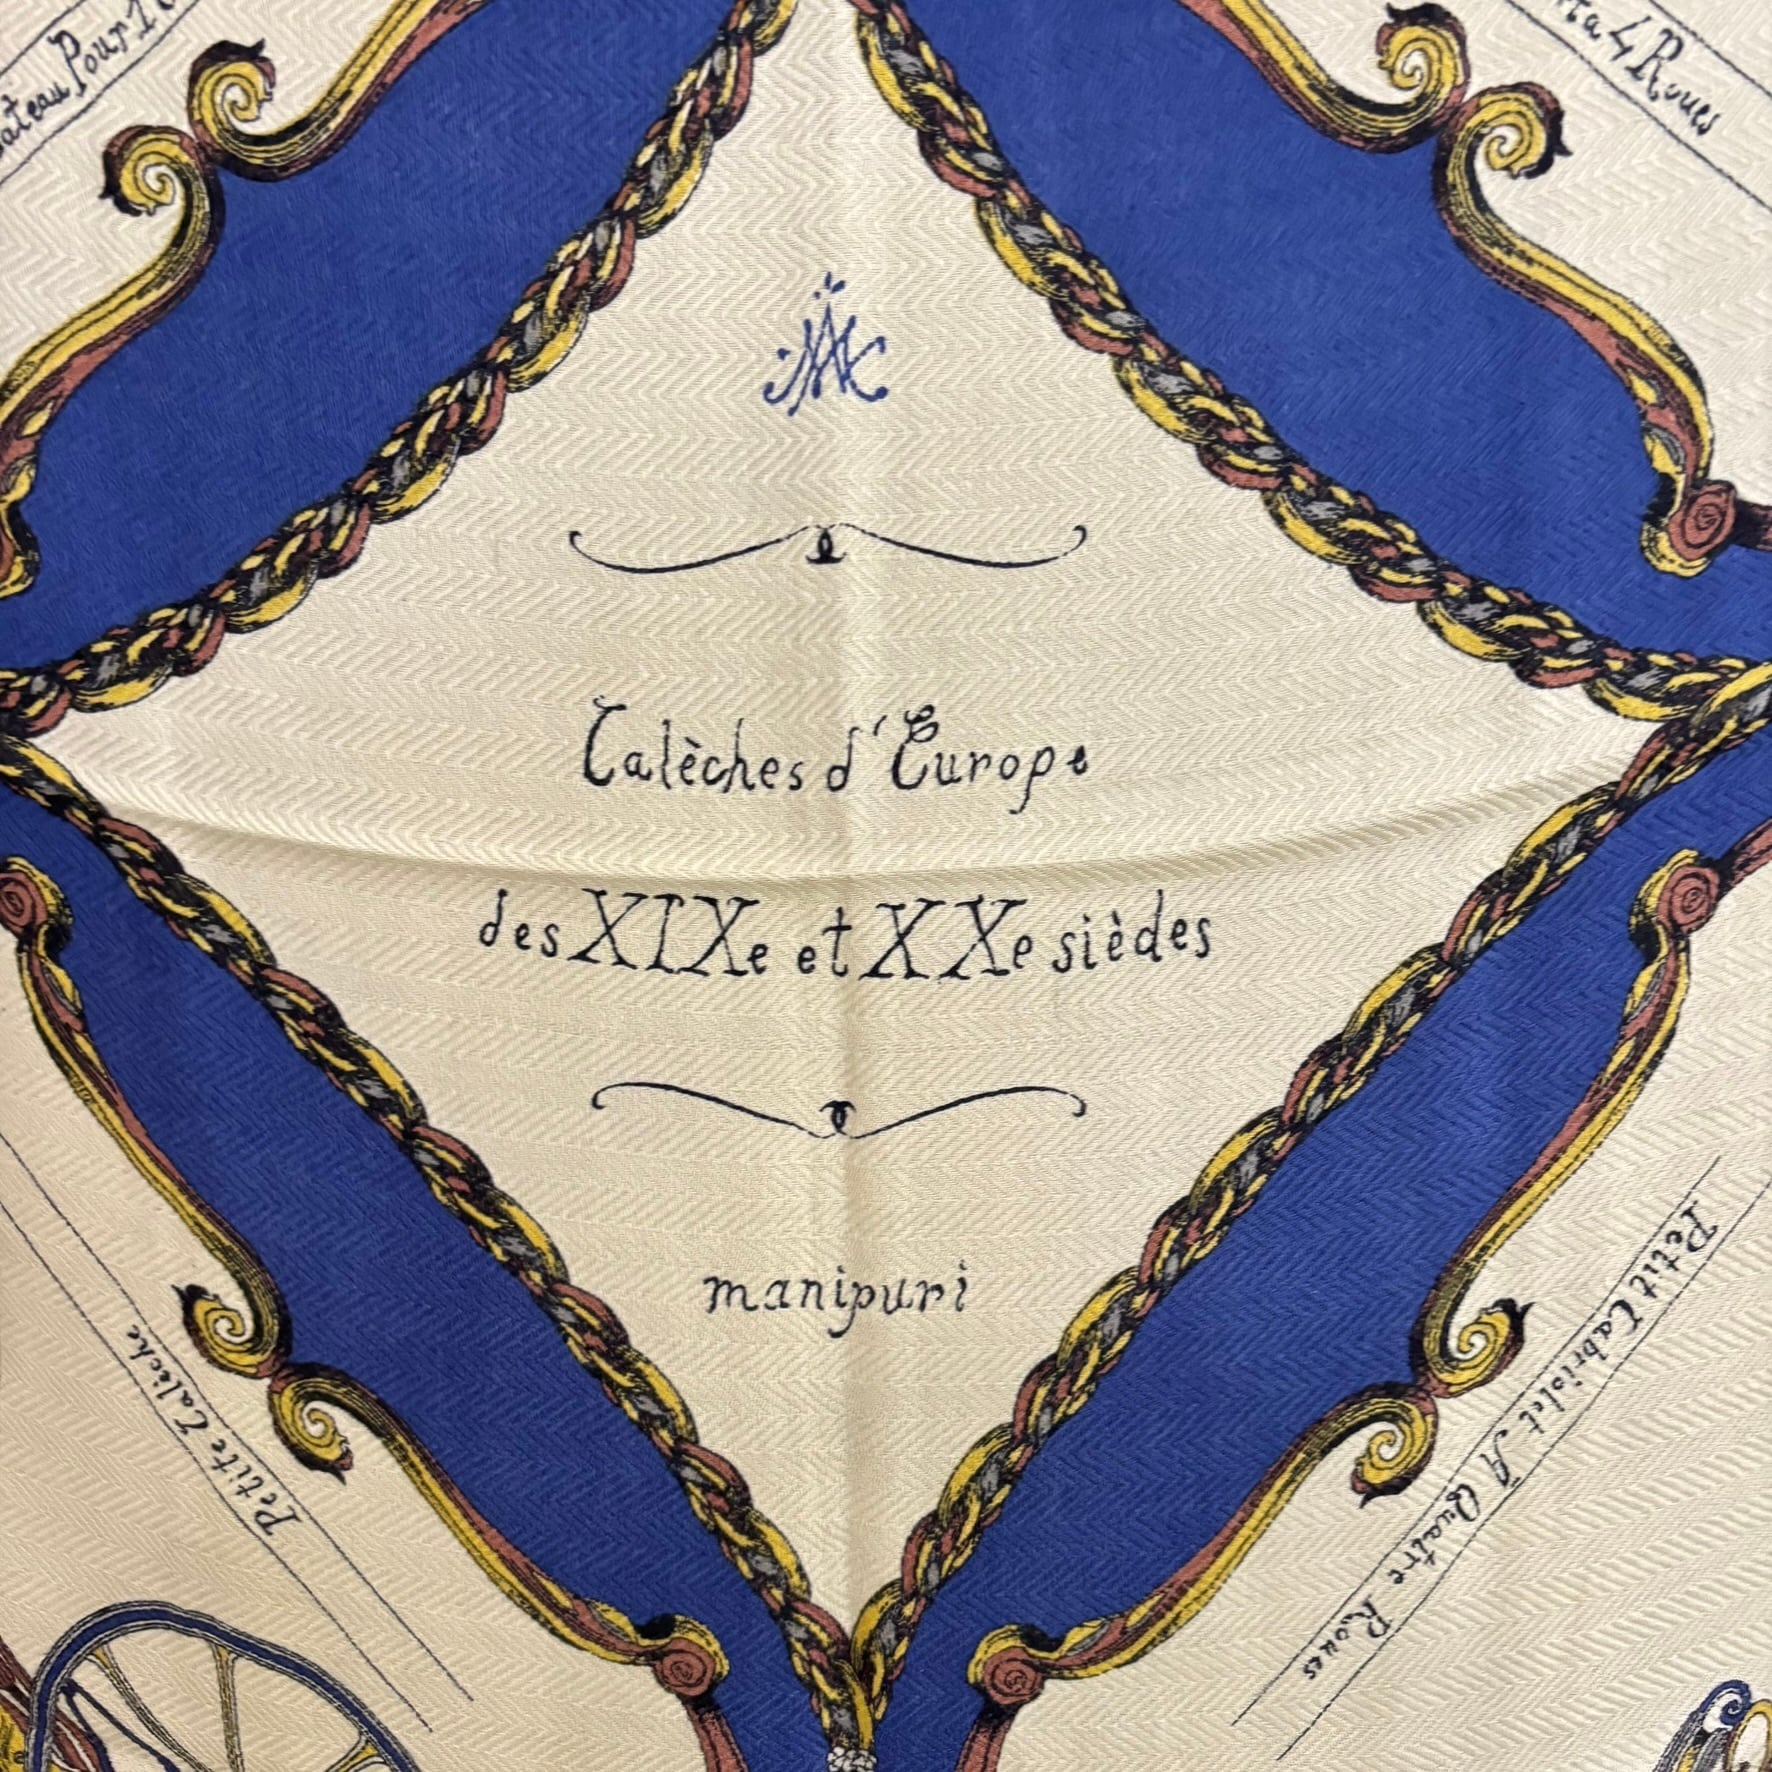 Pour
4 Roues
Calèches d'Europe
des XIXe et XXe sièdes
manipuri
Petite Calèche
Petit Cabriolet A Quatre Roues